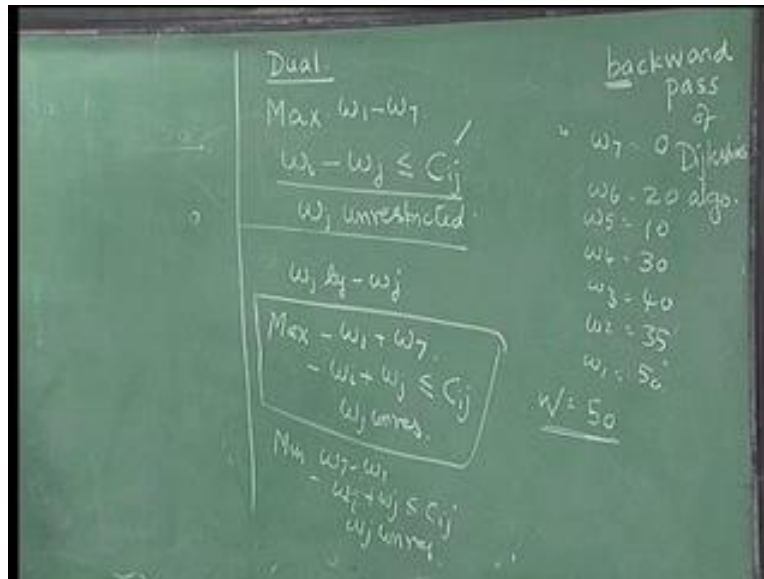 Dual.
Max w₁ - w₇
wᵢ - wⱼ ≤ Cᵢⱼ
wⱼ unrestricted.
wⱼ by - wⱼ
Max - w₁ + w₇.
- wᵢ + wⱼ ≤ Cᵢⱼ
wⱼ unres.
Min w₇ - w₁
- wᵢ + wⱼ ≤ Cᵢⱼ
wⱼ unres.
backward
pass
of
Dijkstra's
algo.
w₇ = 0
w₆ = 20
w₅ = 10
w₄ = 30
w₃ = 40
w₂ = 35
w₁ = 50
W = 50